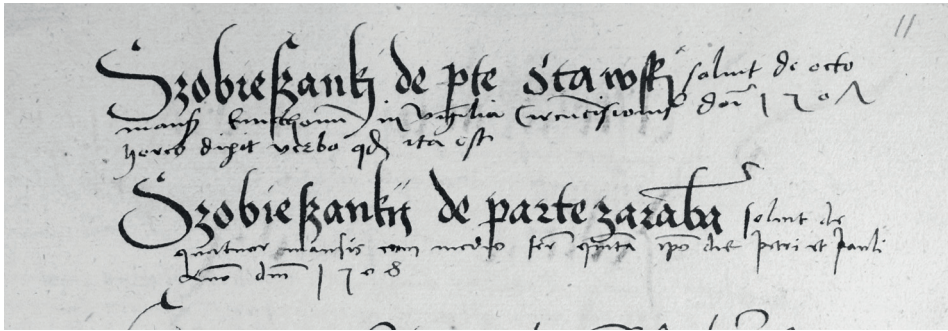 11
Szobieszanky de pte Stawsky soluit de octo
mans kmethonu in vigilia Circucisionis dni 1507
heres dixit verbo qd ita est
Szobieszankij de parte zaraba soluit de
quatuor mansis cum medio fer quinta ipo die petri et pauli
Anno dni 1508